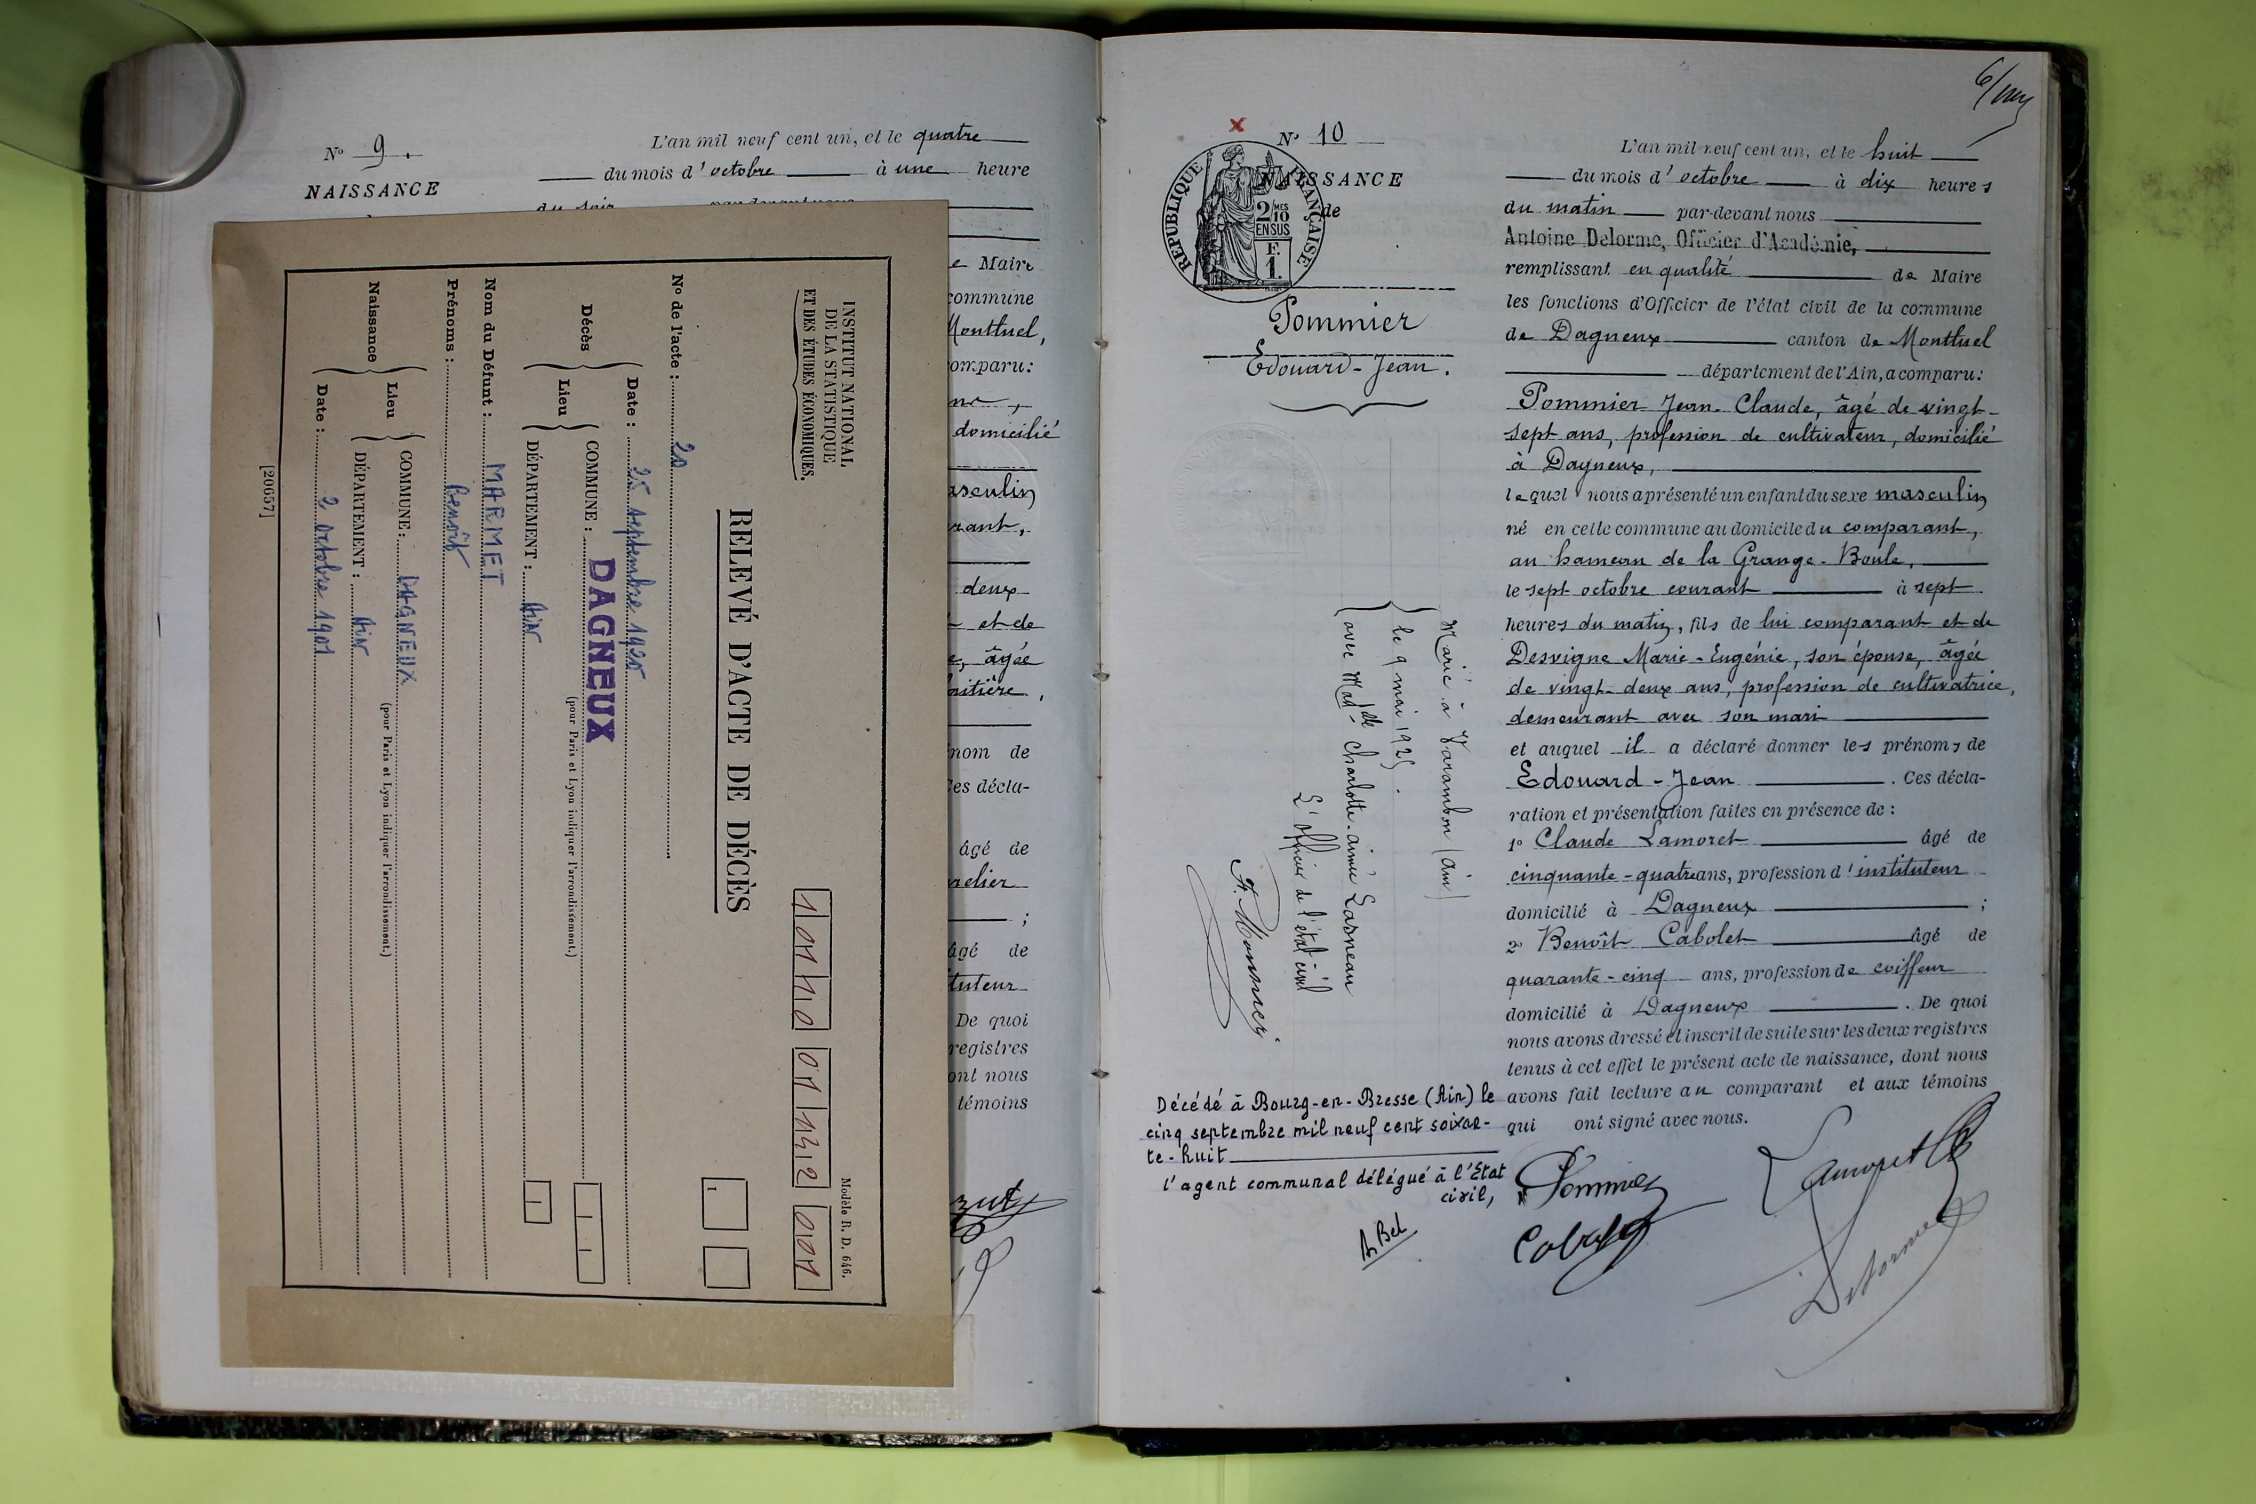 N° 9.
NAISSANCE
L'an mil neuf cent un, et le quatre
du mois d'octobre à une heure
du soir par-devant nous
e Maire
commune
Montluel,
omparu:
ne,
domicilié
asculin
rant,
deux
et de
e, âgée
nom de
es décla-
âgé de
relier
;
âgé de
tuteur
De quoi
registres
ont nous
témoins
INSTITUT NATIONAL
DE LA STATISTIQUE
ET DES ÉTUDES ÉCONOMIQUES.
Modèle R. D. 646.
RELEVÉ D'ACTE DE DÉCÈS
N° de l'acte : 20
Décès
Date : 25 septembre 1920
Lieu
COMMUNE : DAGNEUX
(pour Paris et Lyon indiquer l'arrondissement.)
DÉPARTEMENT : Ain
Nom du Défunt : MARMET
Prénoms : Benoît
Naissance
Lieu
COMMUNE : DAGNEUX
(pour Paris et Lyon indiquer l'arrondissement.)
DÉPARTEMENT : Ain
Date : 2 Octobre 1901
[20657]
6/
N° 10
NAISSANCE
de
RÉPUBLIQUE FRANÇAISE
2/10 MES
EN SUS
F.
1.
Pommier
Edouard-Jean.
L'an mil neuf cent un, et le huit
du mois d'octobre à dix heures
du matin par-devant nous
Antoine Delorme, Officier d'Académie,
remplissant en qualité de Maire
les fonctions d'Officier de l'état civil de la commune
de Dagneux canton de Montluel
département de l'Ain, a comparu:
Pommier Jean-Claude, âgé de vingt-
sept ans, profession de cultivateur, domicilié
à Dagneux,
lequel nous a présenté un enfant du sexe masculin
né en cette commune au domicile du comparant,
au hameau de la Grange-Boule,
le sept octobre courant à sept
heures du matin, fils de lui comparant et de
Desvigne Marie-Eugénie, son épouse, âgée
de vingt-deux ans, profession de cultivatrice,
demeurant avec son mari
et auquel il a déclaré donner les prénoms de
Edouard-Jean. Ces décla-
ration et présentation faites en présence de :
1° Claude Lamoret âgé de
cinquante-quatre ans, profession d'instituteur
domicilié à Dagneux ;
2° Benoît Cabolet âgé de
quarante-cinq ans, profession de coiffeur
domicilié à Dagneux. De quoi
nous avons dressé et inscrit de suite sur les deux registres
tenus à cet effet le présent acte de naissance, dont nous
avons fait lecture au comparant et aux témoins
qui ont signé avec nous.
Marié à Varambon (Ain)
le 9 mai 1925.
avec Mad.lle Charlotte-aimée Lasneau
L'officier de l'état-civil
Décédé à Bourg-en-Bresse (Ain) le
cinq septembre mil neuf cent soixan-
te-huit
l'agent communal délégué à l'Etat
civil,
Pommier
Lamoret
Cabolet
Delorme